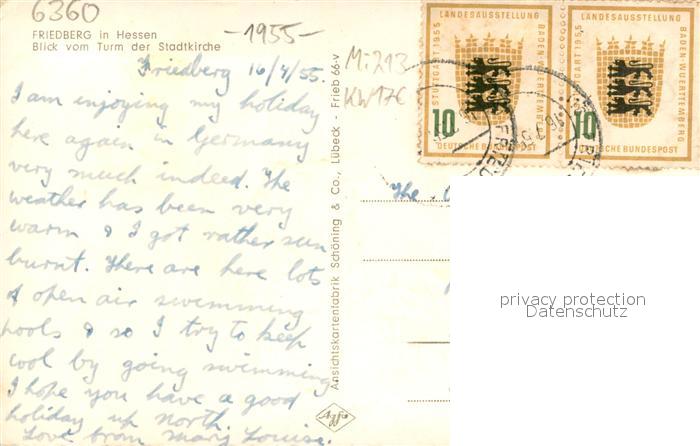 6360
FRIEDBERG in Hessen
Blick vom Turm der Stadtkirche
-1955-
Friedberg 16/7/55.
I am enjoying my holiday
here again in Germany
very much indeed. The
weather has been very
warm & I got rather sun
burnt. There are here lots
of open air swimming
pools & so I try to keep
cool by going swimming.
I hope you have a good
holiday up north.
Love from Mary Louise.
Ansichtskartenfabrik Schöning & Co., Lübeck - Frieb 66-v
Agfa
Mi:213
KW17€
LANDESAUSSTELLUNG
STUTTGART 1955
BADEN-WUERTTEMBERG
10
DEUTSCHE BUNDESPOST
LANDESAUSSTELLUNG
STUTTGART 1955
BADEN-WUERTTEMBERG
10
DEUTSCHE BUNDESPOST
The
privacy protection
Datenschutz